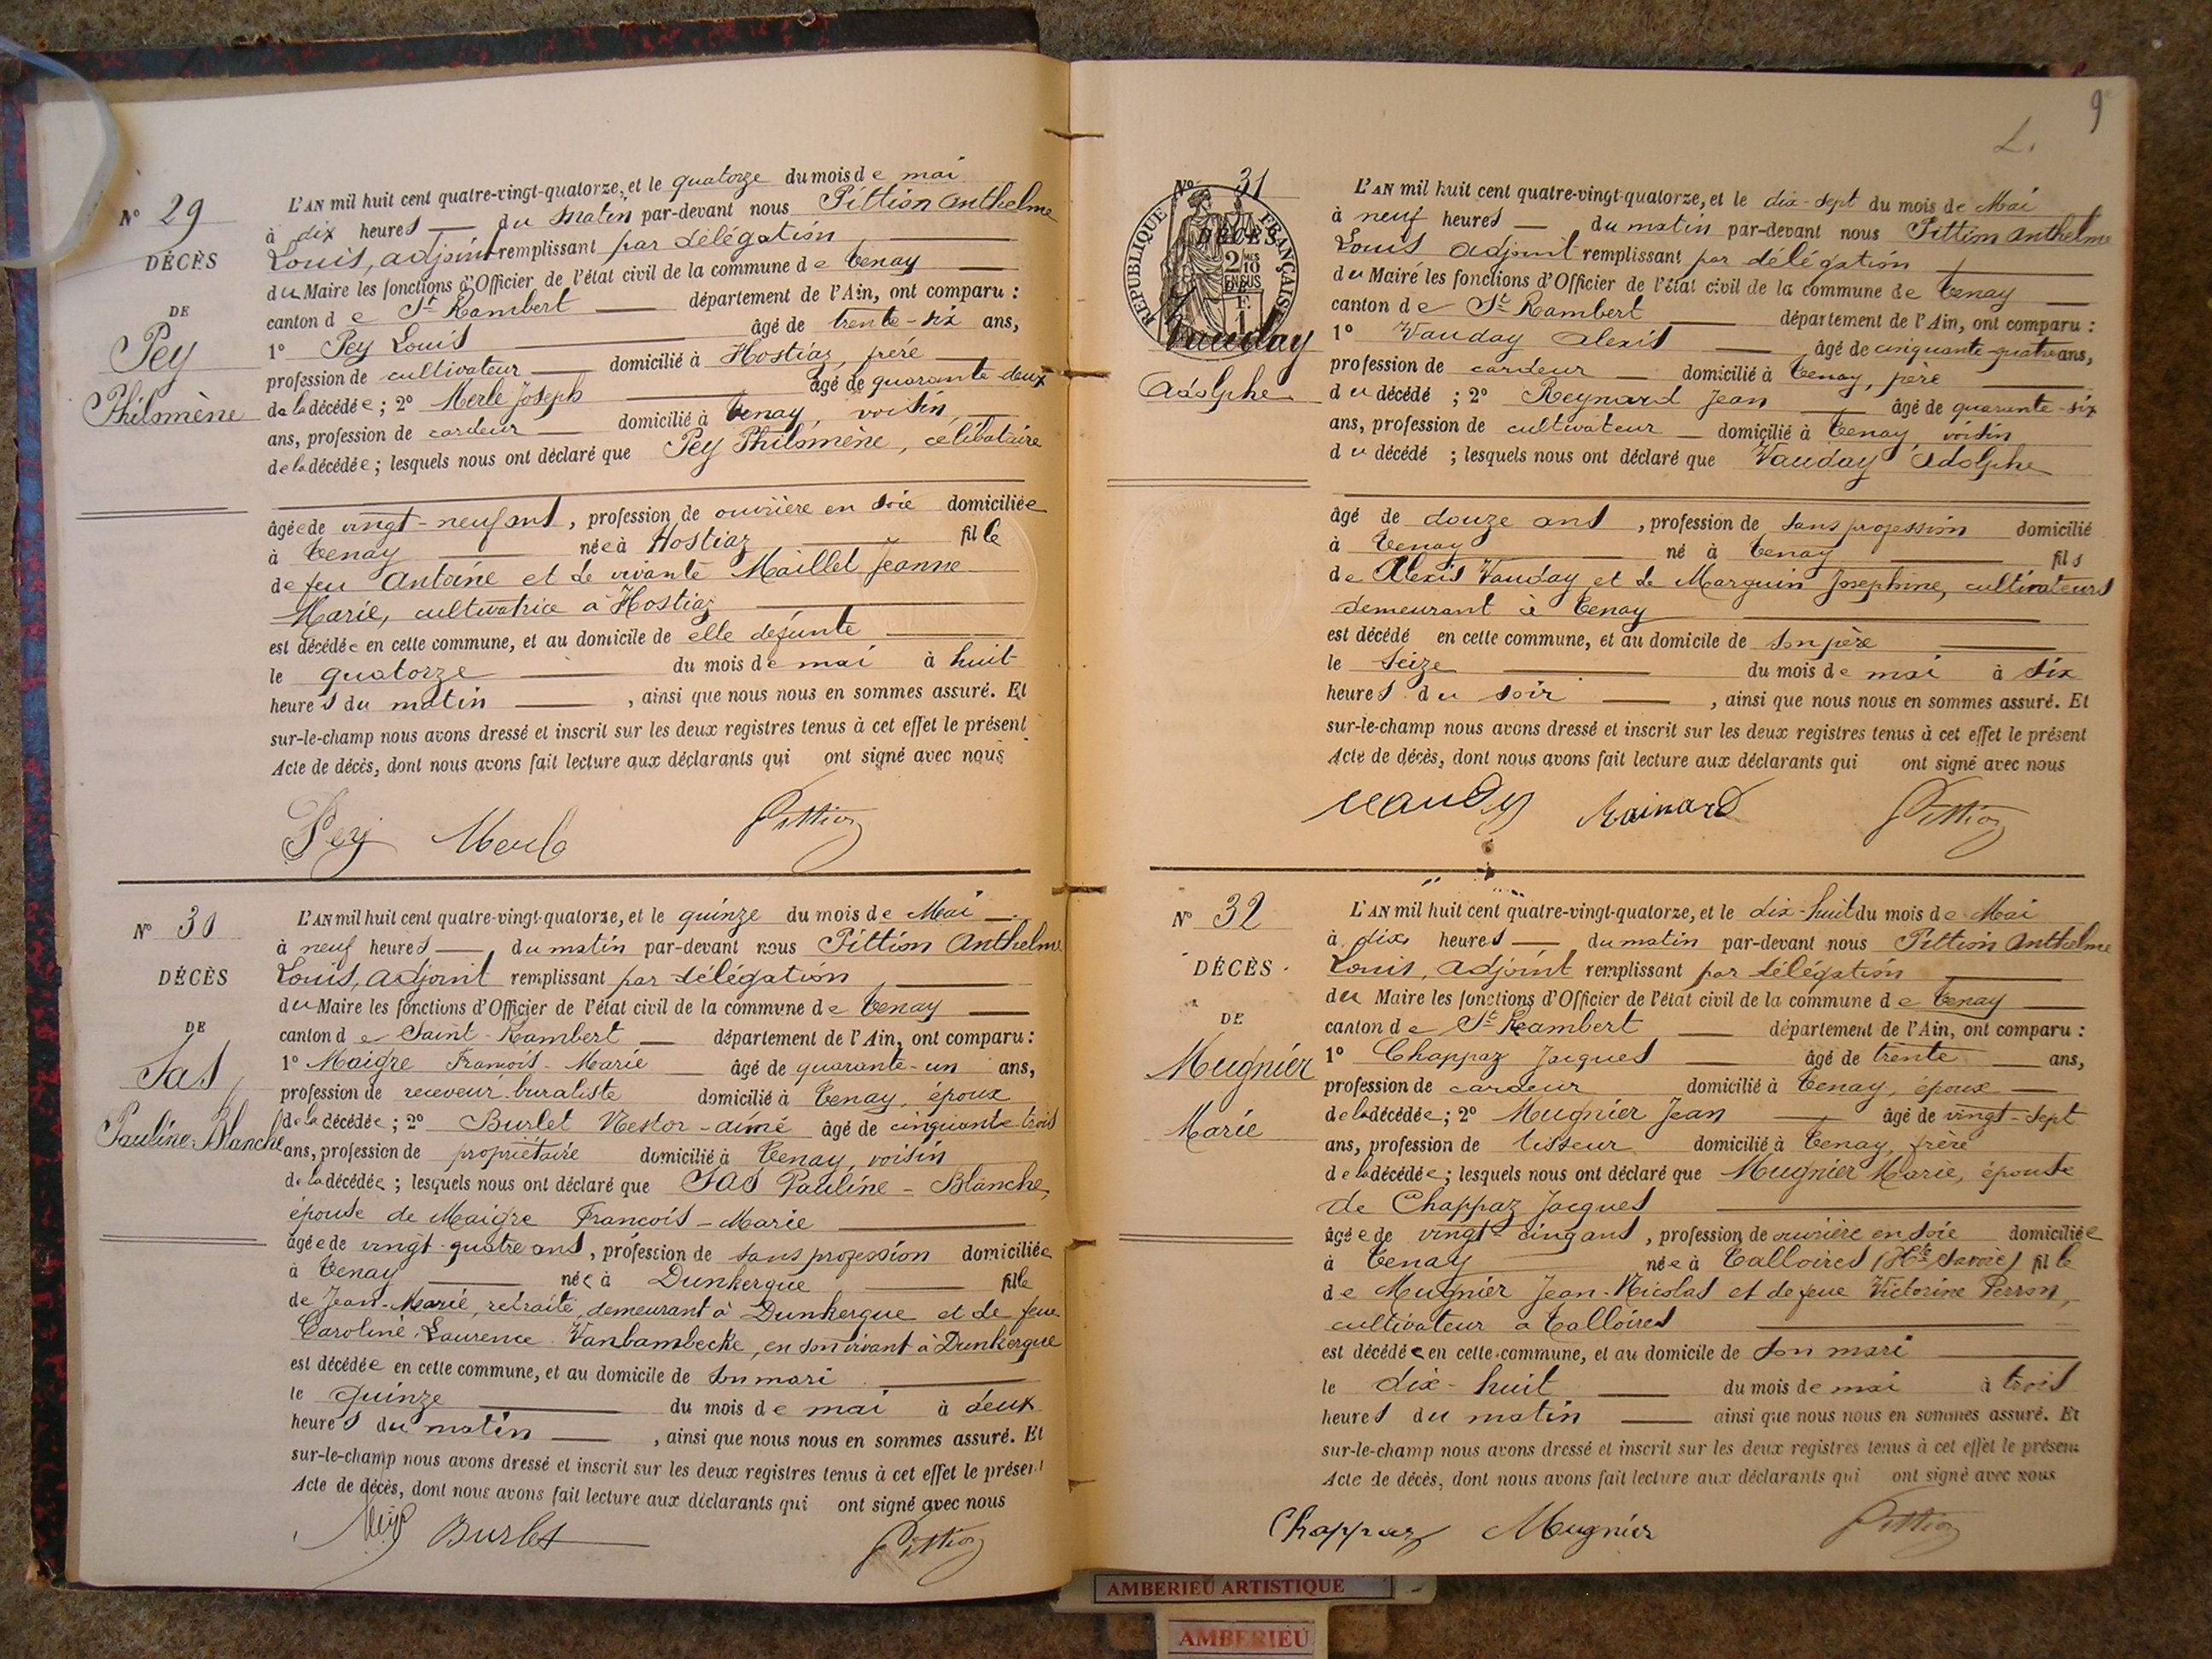 N° 29
DÉCÈS
DE
Pey
Philomène
L'AN mil huit cent quatre-vingt-quatorze, et le quatorze du mois de mai
à dix heures du matin par-devant nous Pittion Anthelme
Louis, adjoint remplissant par délégation
du Maire les fonctions d'Officier de l'état civil de la commune de Tenay
canton de St Rambert département de l'Ain, ont comparu :
1° Pey Louis âgé de trente-six ans,
profession de cultivateur domicilié à Hostiaz, frère
de la décédée ; 2° Merle Joseph âgé de quarante-deux
ans, profession de cardeur domicilié à Tenay, voisin
de la décédée ; lesquels nous ont déclaré que Pey Philomène, célibataire
âgée de vingt-neuf ans, profession de ouvrière en soie domiciliée
à Tenay née à Hostiaz fille
de feu Antoine et de vivante Maillet Jeanne
Marie, cultivatrice à Hostiaz
est décédée en cette commune, et au domicile de elle défunte
le quatorze du mois de mai à huit
heures du matin, ainsi que nous nous en sommes assuré. Et
sur-le-champ nous avons dressé et inscrit sur les deux registres tenus à cet effet le présent
Acte de décès, dont nous avons fait lecture aux déclarants qui ont signé avec nous
Pey Merle Pittion
N° 30
DÉCÈS
DE
Sas
Pauline-Blanche
L'AN mil huit cent quatre-vingt-quatorze, et le quinze du mois de Mai
à neuf heures du matin par-devant nous Pittion Anthelme
Louis, adjoint remplissant par délégation
du Maire les fonctions d'Officier de l'état civil de la commune de Tenay
canton de Saint-Rambert département de l'Ain, ont comparu :
1° Maigre François-Marie âgé de quarante-un ans,
profession de receveur-buraliste domicilié à Tenay, époux
de la décédée ; 2° Burlet Nestor-aimé âgé de cinquante-trois
ans, profession de propriétaire domicilié à Tenay, voisin
de la décédée ; lesquels nous ont déclaré que Sas Pauline-Blanche,
épouse de Maigre François-Marie
âgée de vingt-quatre ans, profession de sans profession domiciliée
à Tenay née à Dunkerque fille
de Jean-Marie, retraité, demeurant à Dunkerque et de feue
Caroline-Laurence Vanbambecke, en son vivant à Dunkerque
est décédée en cette commune, et au domicile de son mari
le quinze du mois de mai à deux
heures du matin, ainsi que nous nous en sommes assuré. Et
sur-le-champ nous avons dressé et inscrit sur les deux registres tenus à cet effet le présent
Acte de décès, dont nous avons fait lecture aux déclarants qui ont signé avec nous
Burlet Pittion
9
L.
N° 31
RÉPUBLIQUE FRANÇAISE
DÉCÈS
2 MES 10
EN SUS
DE
F. 1
Vauday
Adolphe
L'AN mil huit cent quatre-vingt-quatorze, et le dix-sept du mois de Mai
à neuf heures du matin par-devant nous Pittion Anthelme
Louis adjoint remplissant par délégation
du Maire les fonctions d'Officier de l'état civil de la commune de Tenay
canton de St Rambert département de l'Ain, ont comparu :
1° Vauday Alexis âgé de cinquante-quatre ans,
profession de cardeur domicilié à Tenay, père
du décédé ; 2° Reynard Jean âgé de quarante-six
ans, profession de cultivateur domicilié à Tenay, voisin
du décédé ; lesquels nous ont déclaré que Vauday Adolphe
âgé de douze ans, profession de sans profession domicilié
à Tenay né à Tenay fils
de Alexis Vauday et de Marguin Josephine, cultivateurs
demeurant à Tenay
est décédé en cette commune, et au domicile de son père
le seize du mois de mai à six
heures du soir, ainsi que nous nous en sommes assuré. Et
sur-le-champ nous avons dressé et inscrit sur les deux registres tenus à cet effet le présent
Acte de décès, dont nous avons fait lecture aux déclarants qui ont signé avec nous
Vauday Rainard Pittion
N° 32
DÉCÈS
DE
Mugnier
Marie
L'AN mil huit cent quatre-vingt-quatorze, et le dix-huit du mois de Mai
à dix heures du matin par-devant nous Pittion Anthelme
Louis, adjoint remplissant par délégation
du Maire les fonctions d'Officier de l'état civil de la commune de Tenay
canton de St Rambert département de l'Ain, ont comparu :
1° Chappaz Jacques âgé de trente ans,
profession de cardeur domicilié à Tenay, époux
de la décédée ; 2° Mugnier Jean âgé de vingt-sept
ans, profession de tisseur domicilié à Tenay, frère
de la décédée ; lesquels nous ont déclaré que Mugnier Marie, épouse
de Chappaz Jacques
âgée de vingt-cinq ans, profession de ouvrière en soie domiciliée
à Tenay née à Talloires (Hte Savoie) fille
de Mugnier Jean-Nicolas et de feue Victorine Perron,
cultivateur à Talloires
est décédée en cette commune, et au domicile de son mari
le dix-huit du mois de mai à trois
heures du matin ainsi que nous nous en sommes assuré. Et
sur-le-champ nous avons dressé et inscrit sur les deux registres tenus à cet effet le présent
Acte de décès, dont nous avons fait lecture aux déclarants qui ont signé avec nous
Chappaz Mugnier Pittion
AMBERIEU ARTISTIQUE
AMBERIEU